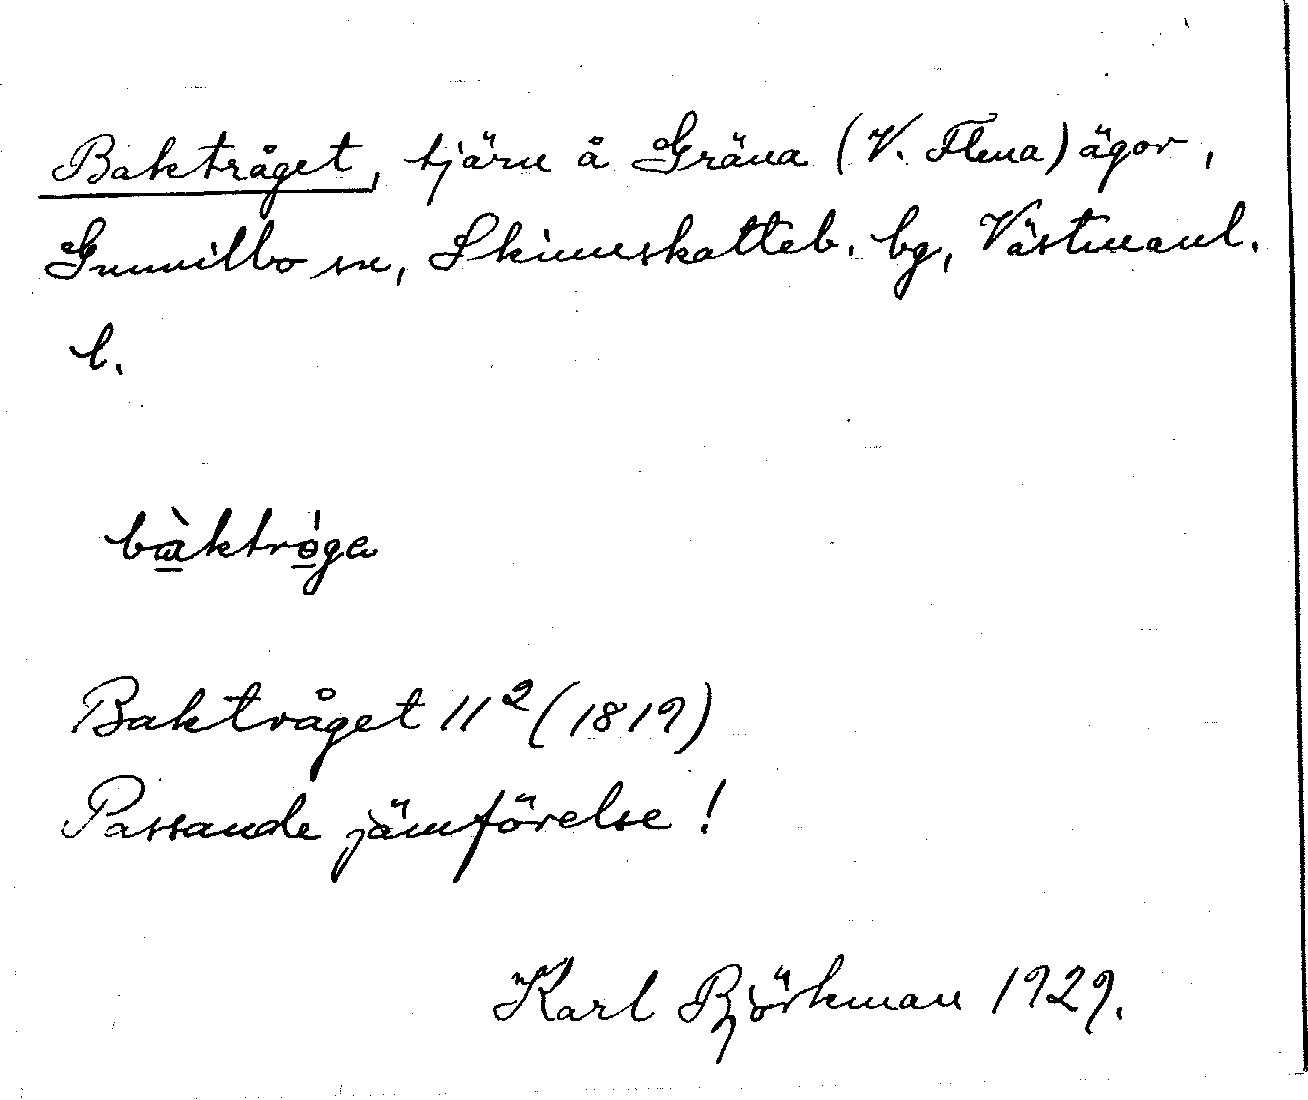 Baktråget, tjärn å Gräna (V. Flena) ägor,
Gunnilbo sn, Skinnskatteb. bg, Västmanl.
l.
bàktrǿga
Baktråget 11² (1819)
Passande jämförelse!
Karl Björkman 1929.